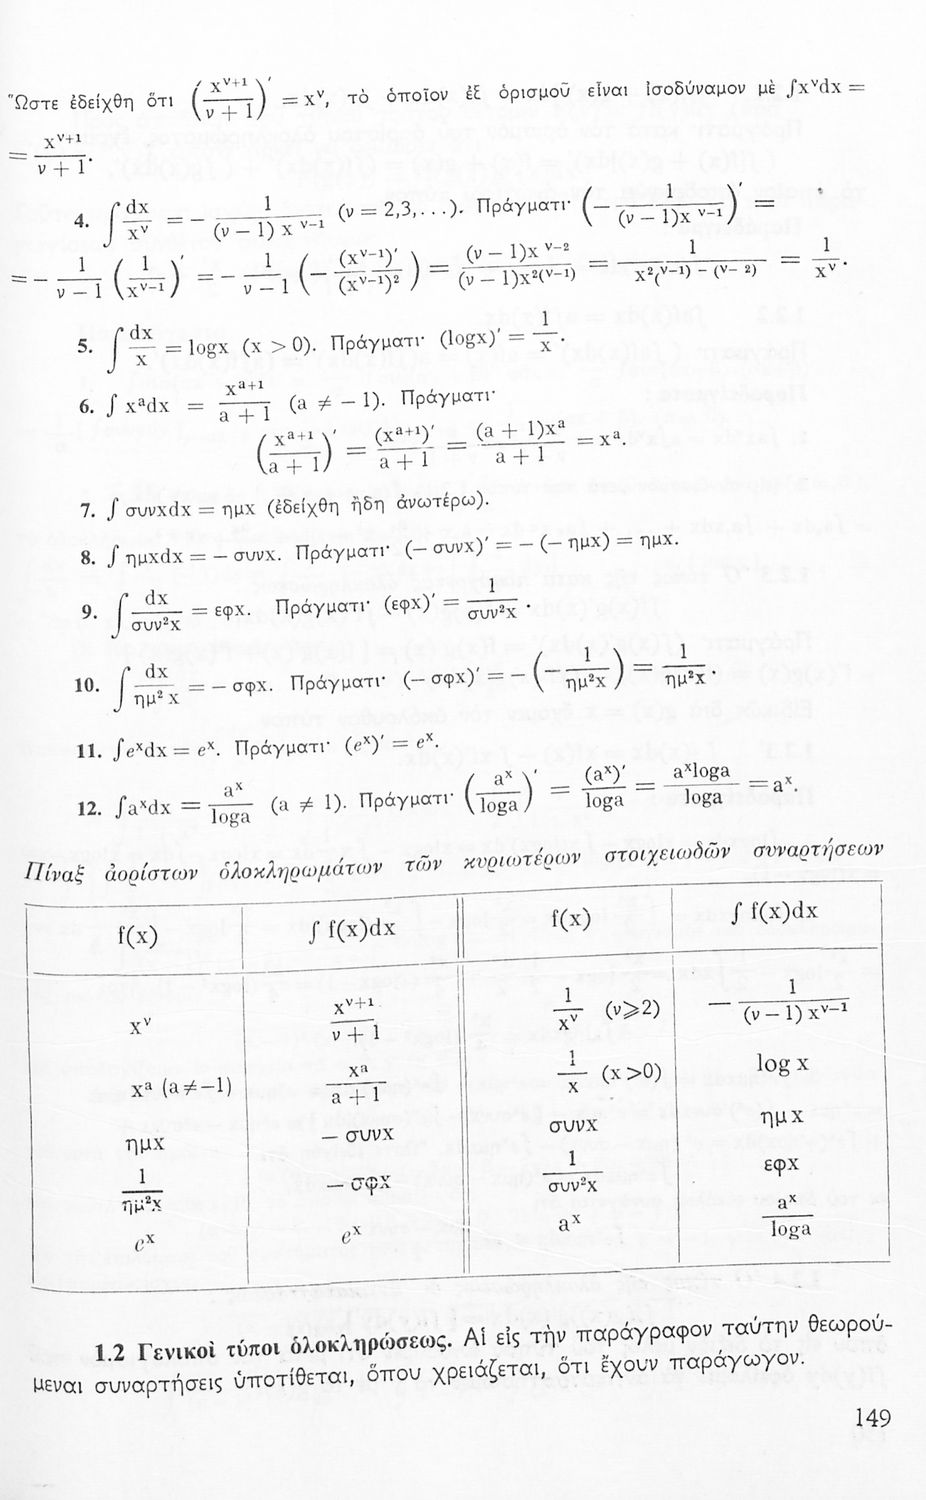 Ὥστε ἐδείχθη ὅτι (x^{ν+1}/(ν + 1))′ = x^ν, τὸ ὁποῖον ἐξ ὁρισμοῦ εἶναι ἰσοδύναμον μὲ ∫x^νdx =
= x^{ν+1}/(ν + 1).
4. ∫ dx/x^ν = − 1/((ν − 1) x^{ν−1}) (ν = 2,3,...). Πράγματι· (− 1/((ν − 1)x^{ν−1}))′ =
= − 1/(ν − 1) (1/x^{ν−1})′ = − 1/(ν − 1) (− (x^{ν−1})′/(x^{ν−1})²) = (ν − 1)x^{ν−2}/((ν − 1)x^{2(ν−1)}) = 1/x^{2(ν−1) − (ν− 2)} = 1/x^ν.
5. ∫ dx/x = logx (x > 0). Πράγματι· (logx)′ = 1/x.
6. ∫ x^a dx = x^{a+1}/(a + 1) (a ≠ − 1). Πράγματι·
(x^{a+1}/(a + 1))′ = (x^{a+1})′/(a + 1) = (a + 1)x^a/(a + 1) = x^a.
7. ∫ συνxdx = ημx (ἐδείχθη ἤδη ἀνωτέρω).
8. ∫ ημxdx = − συνx. Πράγματι· (− συνx)′ = − (− ημx) = ημx.
9. ∫ dx/συν²x = εφx. Πράγματι· (εφx)′ = 1/συν²x.
10. ∫ dx/ημ² x = − σφx. Πράγματι· (− σφx)′ = − (− 1/ημ²x) = 1/ημ²x.
11. ∫e^xdx = e^x. Πράγματι· (e^x)′ = e^x.
12. ∫a^xdx = a^x/loga (a ≠ 1). Πράγματι· (a^x/loga)′ = (a^x)′/loga = a^xloga/loga = a^x.
Πίναξ ἀορίστων ὁλοκληρωμάτων τῶν κυριωτέρων στοιχειωδῶν συναρτήσεων
f(x) ∫ f(x)dx f(x) ∫ f(x)dx
x^ν x^{ν+1}/(ν + 1) 1/x^ν (ν⩾2) − 1/((ν − 1) x^{ν−1})
x^a (a≠−1) x^a/(a + 1) 1/x (x >0) log x
ημx − συνx συνx ημ x
1/ημ²x − σφx 1/συν²x εφx
e^x e^x a^x a^x/loga
1.2 Γενικοὶ τύποι ὁλοκληρώσεως. Αἱ εἰς τὴν παράγραφον ταύτην θεωρού-
μεναι συναρτήσεις ὑποτίθεται, ὅπου χρειάζεται, ὅτι ἔχουν παράγωγον.
149